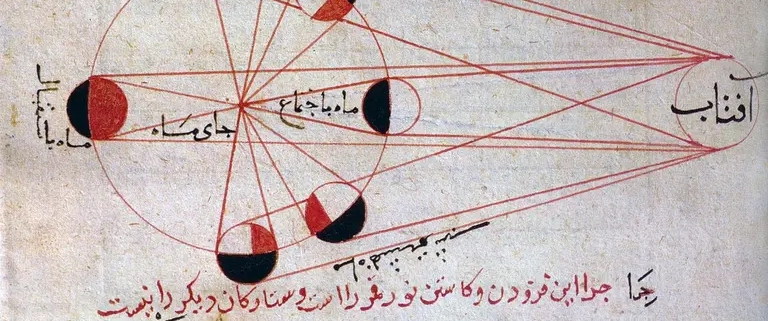 افتاب
ماه باجتماع
جای ماه
ماه باستقبال
چرا چرا این فزودن و کاستن نور قمر را است و ستارکان دیکر را نیست